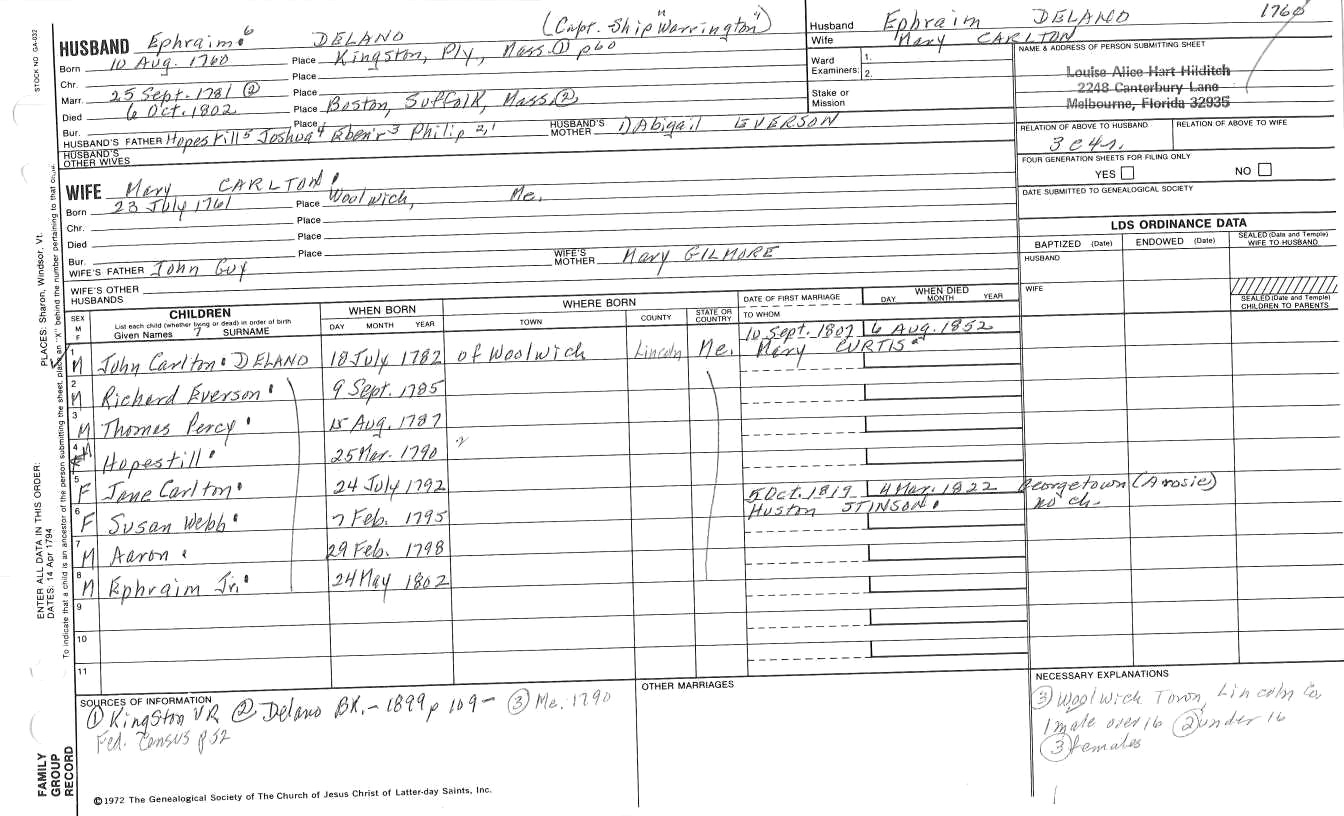 STOCK NO. GA-032
(Capt. Ship "Warrington")
HUSBAND Ephraim 6 DELANO
Born 10 Aug. 1760 Place Kingston, Ply, Mass. ① p60
Chr. Place
Marr. 25 Sept. 1781 ② Place
Died 6 Oct. 1802 Place Boston, Suffolk, Mass. ②
Bur. Place
HUSBAND'S FATHER Hopestill 5 Joshua 4 Eben'r 3 Philip 2,1 HUSBAND'S MOTHER 1) Abigail EVERSON
HUSBAND'S OTHER WIVES
WIFE Mary CARLTON
Born 23 July 1761 Place Woolwich, Me.
Chr. Place
Died Place
Bur. Place
WIFE'S FATHER John Guy WIFE'S MOTHER Mary GILMORE
WIFE'S OTHER HUSBANDS
Husband Ephraim DELANO 1760
Wife Mary CARLTON
Ward Examiners: 1.
2.
Stake or Mission
NAME & ADDRESS OF PERSON SUBMITTING SHEET
Louise Alice Hart Hilditch
2248 Canterbury Lane
Melbourne, Florida 32935
RELATION OF ABOVE TO HUSBAND RELATION OF ABOVE TO WIFE
3 c4r.
FOUR GENERATION SHEETS FOR FILING ONLY
YES NO
DATE SUBMITTED TO GENEALOGICAL SOCIETY
LDS ORDINANCE DATA
BAPTIZED (Date) ENDOWED (Date) SEALED (Date and Temple) WIFE TO HUSBAND
HUSBAND
WIFE
SEALED (Date and Temple) CHILDREN TO PARENTS
SEX M F
CHILDREN
List each child (whether living or dead) in order of birth
Given Names 7 SURNAME
WHEN BORN
DAY MONTH YEAR
WHERE BORN
TOWN COUNTY STATE OR COUNTRY
DATE OF FIRST MARRIAGE
TO WHOM
WHEN DIED
DAY MONTH YEAR
1 M John Carlton DELANO 18 July 1782 of Woolwich Lincoln Me. 10 Sept. 1807 6 Aug. 1852
Mary CURTIS
2 M Richard Everson 9 Sept. 1785
3 M Thomas Percy 15 Aug. 1787
4 M Hopestill 25 Mar. 1790
5 F Jane Carlton 24 July 1792 5 Oct. 1819 4 Mar. 1822 Georgetown (Arosic)
Huston STINSON no ch.
6 F Susan Webb 7 Feb. 1795
7 M Aaron 29 Feb. 1798
8 M Ephraim Jr. 24 May 1802
9
10
11
SOURCES OF INFORMATION
① Kingston VR ② Delano BK. - 1899 p 109 - ③ Me. 1790
Fed. Census p 52
OTHER MARRIAGES
NECESSARY EXPLANATIONS
③ Woolwich Town, Lincoln Co
1 male over 16 ② under 16
③ females
©1972 The Genealogical Society of The Church of Jesus Christ of Latter-day Saints, Inc.
FAMILY GROUP RECORD
ENTER ALL DATA IN THIS ORDER:
DATES: 14 Apr 1794
PLACES: Sharon, Windsor, Vt.
To indicate that a child is an ancestor of the person submitting the sheet, place an "X" behind the number pertaining to that child.